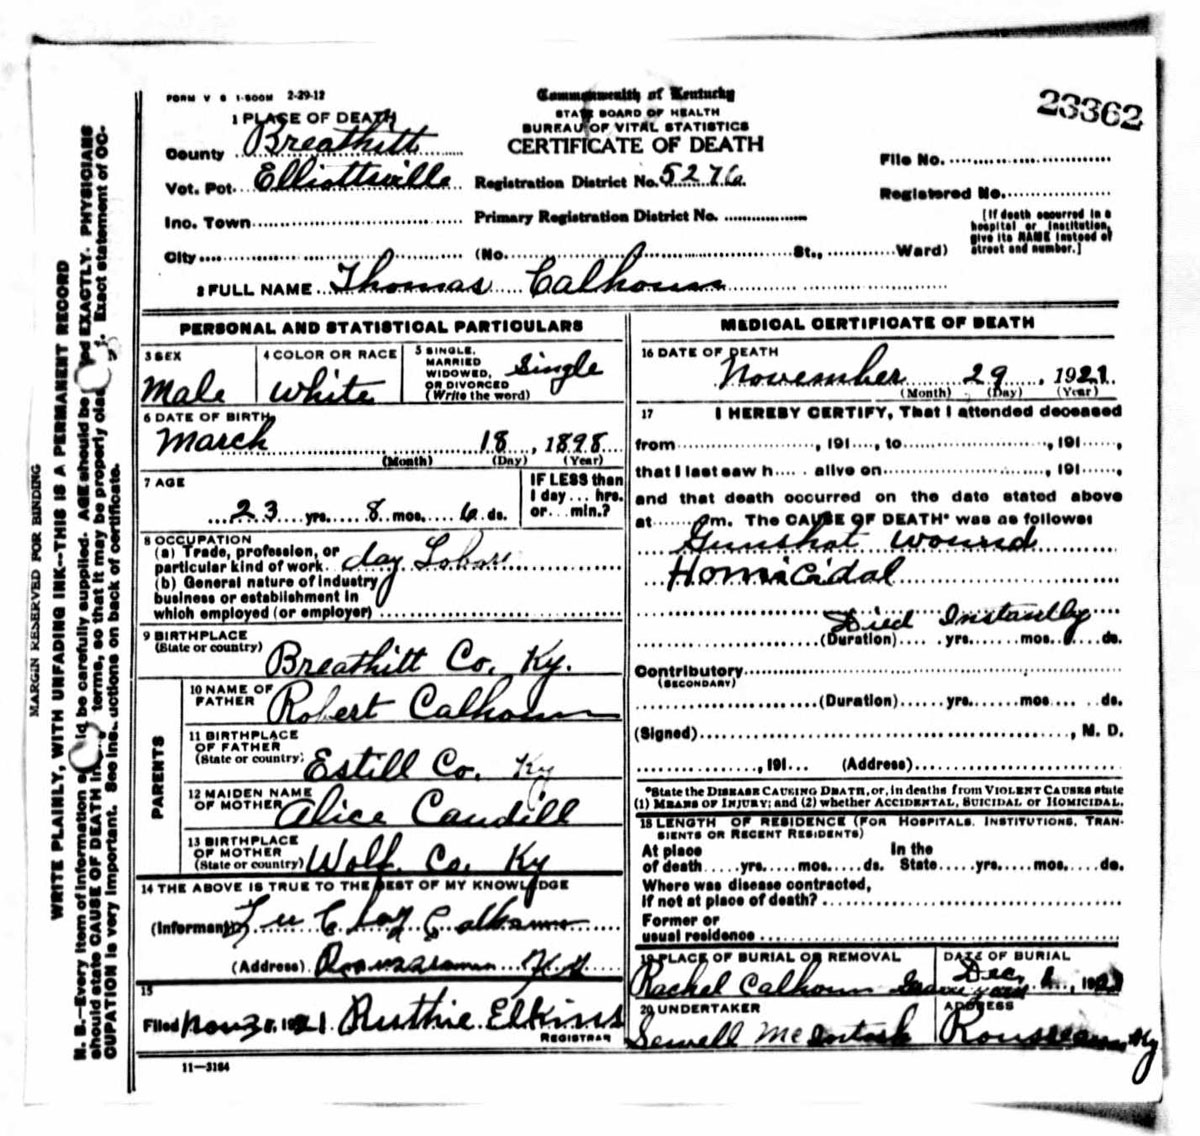 FORM V S 1-500M 2-29-12
Commonwealth of Kentucky
STATE BOARD OF HEALTH
BUREAU OF VITAL STATISTICS
CERTIFICATE OF DEATH
23362
1 PLACE OF DEATH
County Breathitt
Vot. Pct. Elliottsville Registration District No. 5276
Inc. Town Primary Registration District No.
City (No. St., Ward)
File No.
Registered No.
[If death occurred in a
hospital or institution,
give its NAME instead of
street and number.]
2 FULL NAME Thomas Calhoun
PERSONAL AND STATISTICAL PARTICULARS
3 SEX
Male
4 COLOR OR RACE
White
5 SINGLE,
MARRIED
WIDOWED,
OR DIVORCED
(Write the word)
Single
6 DATE OF BIRTH
March 18, 1898
(Month) (Day) (Year)
7 AGE
23 yrs. 8 mos. 6 ds.
IF LESS than
1 day... hrs.
or... min.?
8 OCCUPATION
(a) Trade, profession, or
particular kind of work. day Labor
(b) General nature of industry
business or establishment in
which employed (or employer)
9 BIRTHPLACE
(State or country)
Breathitt Co. Ky.
PARENTS
10 NAME OF
FATHER
Robert Calhoun
11 BIRTHPLACE
OF FATHER
(State or country)
Estill Co. Ky
12 MAIDEN NAME
OF MOTHER
Alice Caudill
13 BIRTHPLACE
OF MOTHER
(State or country)
Wolf. Co. Ky
14 THE ABOVE IS TRUE TO THE BEST OF MY KNOWLEDGE
(Informant) Calhoun
(Address) Ky
15
Filed Nov 30, 1921. Ruthie Elkins
REGISTRAR
11-3184
MEDICAL CERTIFICATE OF DEATH
16 DATE OF DEATH
November 29, 1921
(Month) (Day) (Year)
17 I HEREBY CERTIFY, That I attended deceased
from , 191 , to , 191 ,
that I last saw h alive on , 191 ,
and that death occurred on the date stated above
at m. The CAUSE OF DEATH* was as follows:
Gunshot wound
Homicidal
Died Instantly
(Duration) yrs. mos. ds.
Contributory
(SECONDARY)
(Duration) yrs. mos. ds.
(Signed) , M. D.
, 191 (Address)
*State the DISEASE CAUSING DEATH, or, in deaths from VIOLENT CAUSES state
(1) MEANS OF INJURY; and (2) whether ACCIDENTAL, SUICIDAL OF HOMICIDAL.
18 LENGTH OF RESIDENCE (FOR HOSPITALS, INSTITUTIONS, TRAN-
SIENTS OR RECENT RESIDENTS)
At place In the
of death yrs. mos. ds. State yrs. mos. ds.
Where was disease contracted,
if not at place of death?
Former or
usual residence
19 PLACE OF BURIAL OR REMOVAL
Rachel Calhoun Graveyard
DATE OF BURIAL
Dec. 1, 1921
20 UNDERTAKER
Sewell McIntosh
ADDRESS
Rousseau Ky
MARGIN RESERVED FOR BINDING
WRITE PLAINLY, WITH UNFADING INK--THIS IS A PERMANENT RECORD
N. B.--Every item of information should be carefully supplied. AGE should be stated EXACTLY. PHYSICIANS
should state CAUSE OF DEATH in terms, so that it may be properly classified. Exact statement of OC-
CUPATION is very important. See instructions on back of certificate.